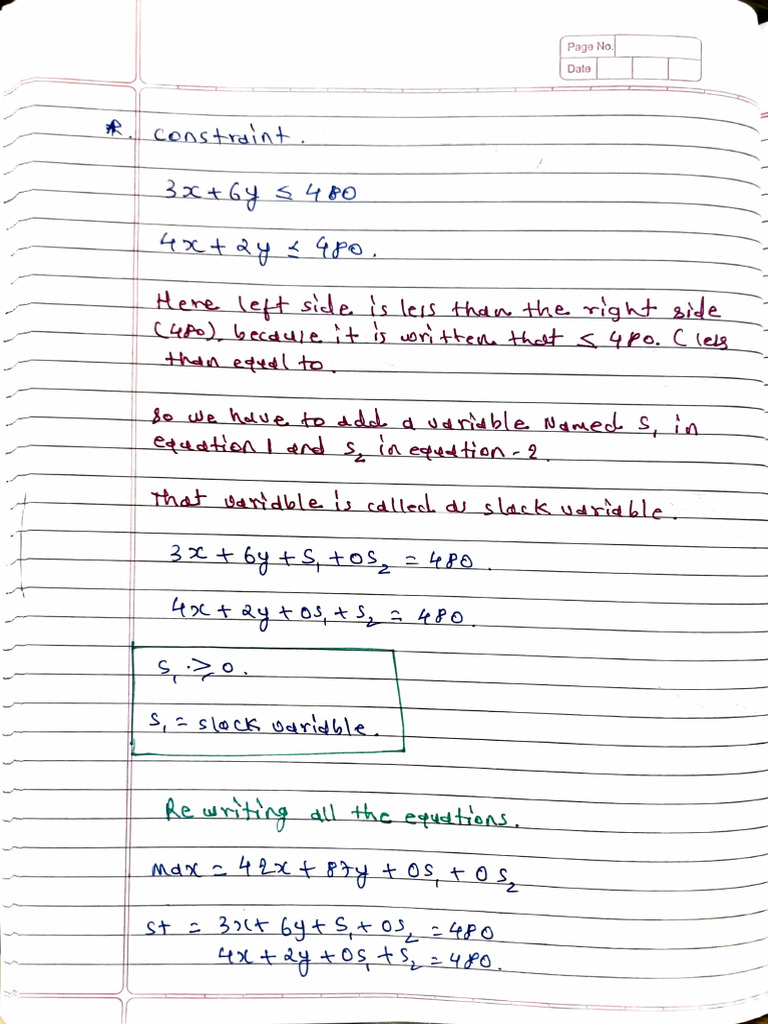 Page No.
Date
*. constraint.
3x + 6y ≤ 480
4x + 2y ≤ 480.
Here left side is less than the right side
(480). because it is written that ≤ 480. (less
than equal to.
so we have to add a variable Named S₁ in
equation 1 and S₂ in equation - 2.
That variable is called as slack variable.
3x + 6y + S₁ + 0S₂ = 480.
4x + 2y + 0S₁ + S₂ = 480.
S₁ ≥ 0.
S₁ = slack variable.
Re writing all the equations.
max = 42x + 87y + 0S₁ + 0S₂
st = 3x + 6y + S₁ + 0S₂ = 480
4x + 2y + 0S₁ + S₂ = 480.